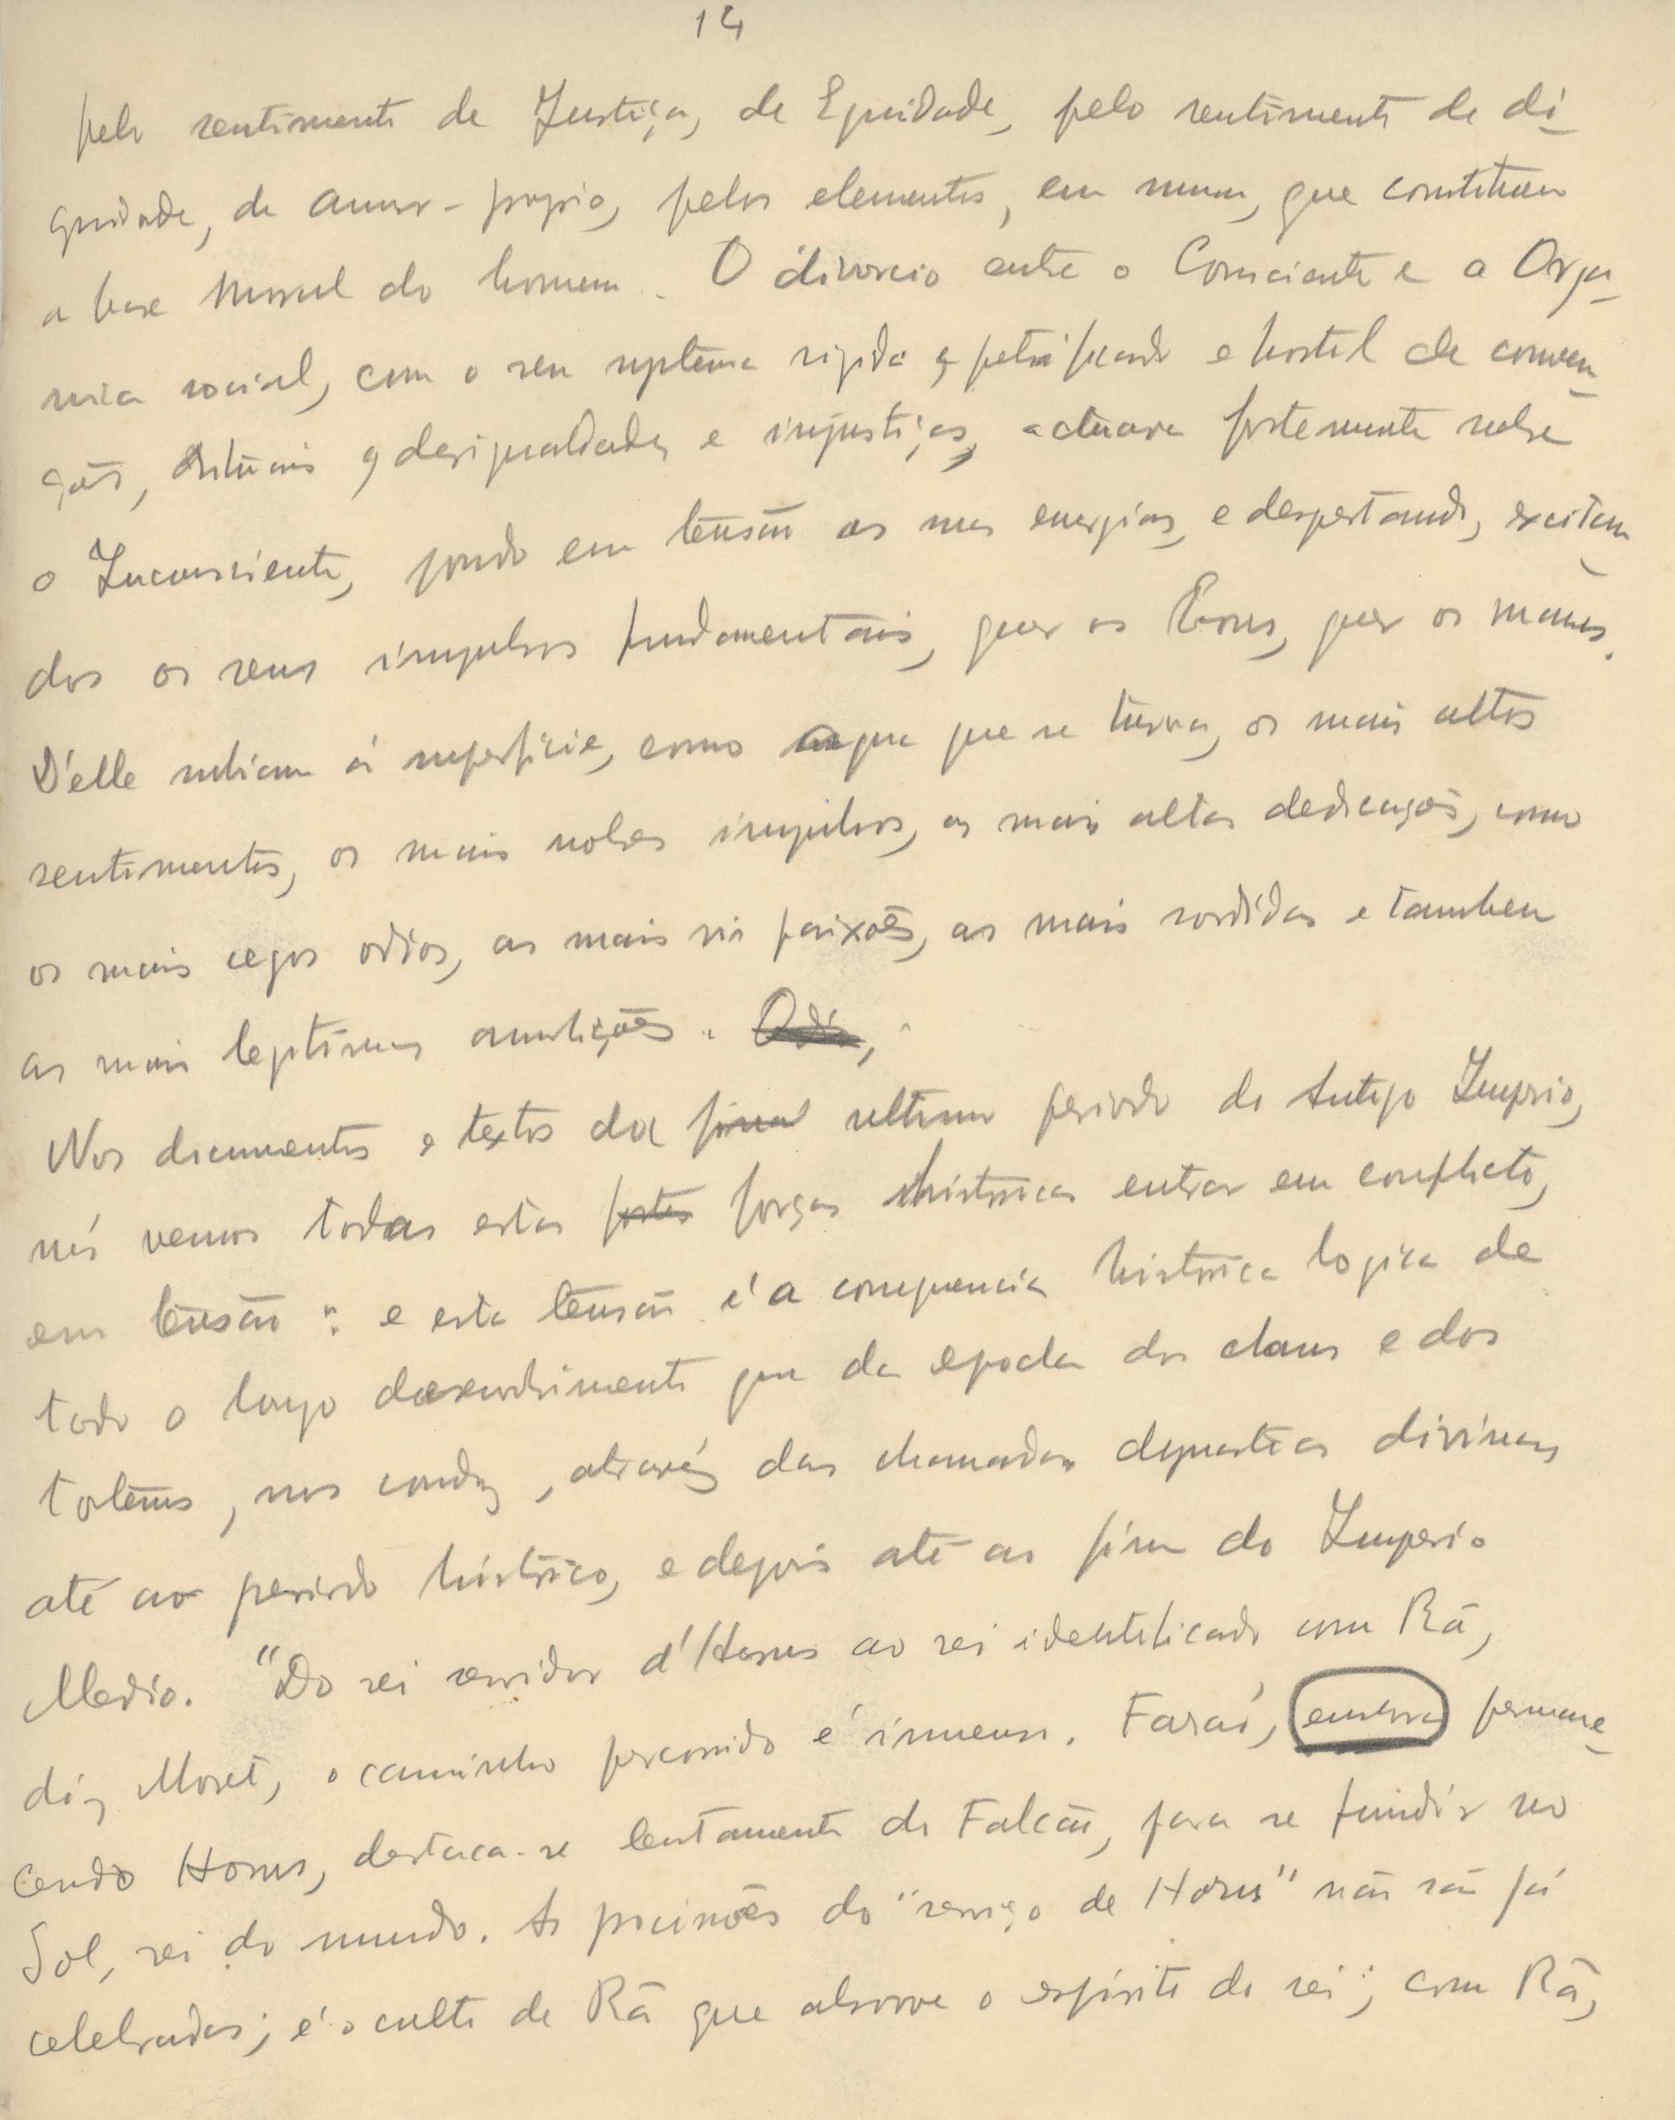 14
pelo sentimento de Justiça, de Equidade, pelo sentimento de di-
gnidade, de amor-proprio, pelos elementos, em summa, que constituem
a base moral do homem. O divorcio entre o Consciente e a Orga-
nica social, com o seu systema rigido e petrificado e hostil de conven-
ções, rituais, desigualdades e injustiças, actuava fortemente sobre
o Inconsciente, pondo em tensão as suas energias, e despertando, excitan-
do os seus impulsos fundamentais, quer os bons, quer os maus.
D'elle subiam á superficie, como agua que se turva, os mais altos
sentimentos, os mais nobres impulsos, as mais altas dedicações, como
os mais cegos odios, as mais vis paixões, as mais sordidas e tambem
as mais legitimas ambições.
Nos documentos e textos do final ultimo periodo do Antigo Imperio,
nós vemos todas estas fortes forças historicas entrar em conflicto,
em tensão: e esta tensão é a consequencia historica logica de
todo o longo desenvolvimento que da epocha dos clans e dos
totems, nos conduz, através das chamadas dynastias divinas,
até ao periodo historico, e depois até ao fim do Imperio
Medio. "Do rei servidor d'Horus ao rei identificado com Rã,
diz Moret, o caminho percorrido é immenso. Faraó, embora permane-
cendo Horus, destaca-se lentamente do Falcão, para se fundir no
Sol, rei do mundo. As procissões do "serviço de Horus" não são já
celebradas; é o culto de Rã que absorve o espirito do rei; com Rã,